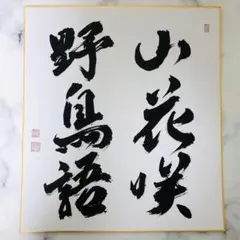 山花咲
野鳥語